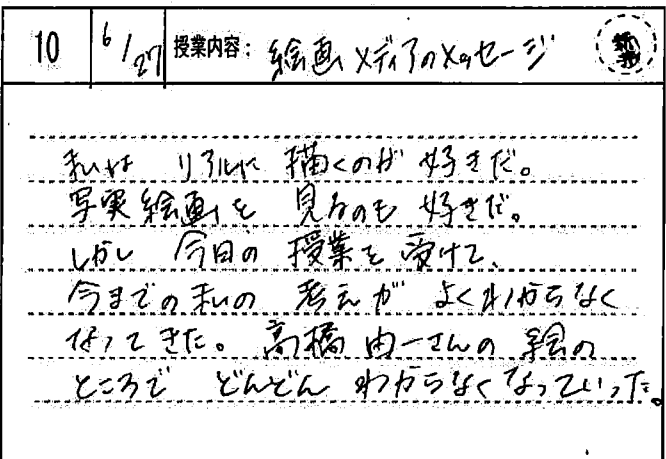 10 6/27 授業内容: 絵画メディアのメッセージ
私は リアルに 描くのが 好きだ。
写実絵画を 見るのも 好きだ。
しかし 今日の 授業を 受けて、
今までの私の 考えが よくわからなく
なってきた。高橋由一さんの 絵の
ところで どんどん わからなくなっていった。